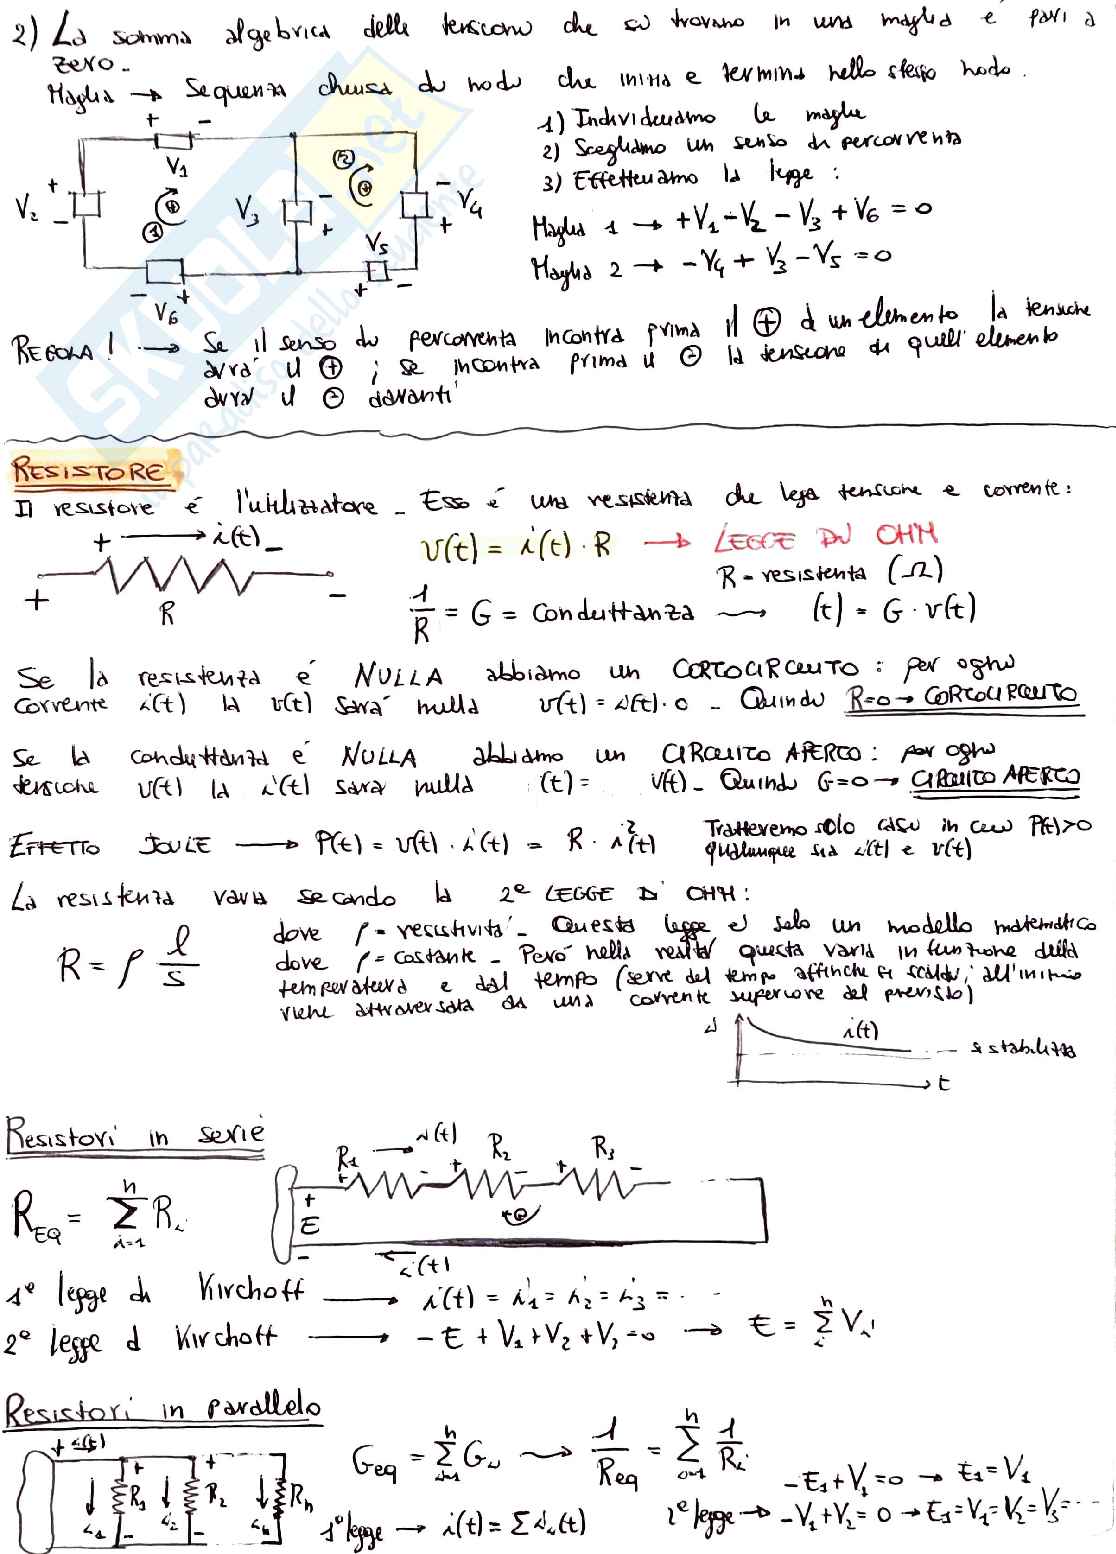 2) La somma algebrica delle tensioni che si trovano in una maglia è pari a
zero.
Maglia → Sequenza chiusa di nodi che inizia e termina nello stesso nodo.
1) Individuiamo le maglie
2) Scegliamo un senso di percorrenza
3) Effettuiamo la legge :
+ - V1
+ - V2
V3 - +
- + V4
V5 + -
- + V6
1 +
2 +
Maglia 1 → +V1 - V2 - V3 + V6 = 0
Maglia 2 → -V4 + V3 - V5 = 0
REGOLA! → Se il senso di percorrenza incontra prima il ⊕ di un elemento la tensione
avrà il ⊕ ; se incontra prima il ⊖ la tensione di quell'elemento
avrà il ⊖ davanti
SKUOLA.net
RESISTORE
Il resistore è l'utilizzatore - Esso è una resistenza che lega tensione e corrente:
+ → i(t) -
+ R -
v(t) = i(t) · R → LEGGE DI OHM
R - resistenza (Ω)
1/R = G = Conduttanza → (t) = G · v(t)
Se la resistenza è NULLA abbiamo un CORTOCIRCUITO : per ogni
corrente i(t) la v(t) sarà nulla v(t) = i(t)·0 - Quindi R=0 → CORTOCIRCUITO
Se la conduttanza è NULLA abbiamo un CIRCUITO APERTO : per ogni
tensione v(t) la i(t) sarà nulla (t) = v(t) - Quindi G=0 → CIRCUITO APERTO
EFFETTO JOULE → P(t) = v(t) · i(t) = R · i²(t) Tratteremo solo casi in cui P(t)>0
qualunque sia i(t) e v(t)
La resistenza varia secondo la 2ᵉ LEGGE DI OHM :
R = ρ l/s
dove ρ = resistività - Questa legge è solo un modello matematico
dove ρ = costante - Però nella realtà questa varia in funzione della
temperatura e dal tempo (serve del tempo affinche si scaldi, all'inizio
viene attraversata da una corrente superiore del previsto)
i i(t) si stabilizza
t
Resistori in serie
R1 i(t) R2 R3
+ - + - + -
+ E -
i(t)
R_EQ = Σ_{i=1}^{n} R_i
1ᵉ legge di Kirchoff → i(t) = i1 = i2 = i3 = ...
2ᵉ legge d Kirchoff → -E + V1 + V2 + V3 = 0 → E = Σ_{i}^{n} V_i
Resistori in parallelo
+ i(t) + +
i1 R1 i2 R2 in Rn
- -
Geq = Σ_{i=1}^{n} G_i → 1/Req = Σ_{i=1}^{n} 1/R_i
-E1 + V1 = 0 → E1 = V1
1ᵉ legge → i(t) = Σ i_n(t) 2ᵉ legge → -V1 + V2 = 0 → E1 = V1 = V2 = V3 = ...